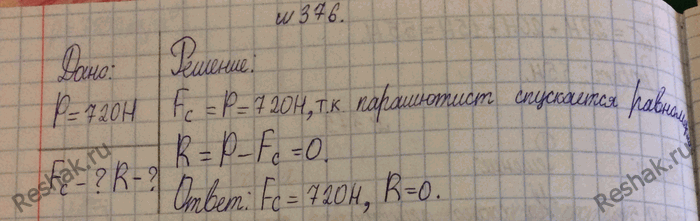 № 376.
Дано:
P=720Н
Fc-? R-?
Решение:
Fc=P=720Н, т.к парашютист спускается
R=P-Fc=0.
Ответ: Fc=720Н, R=0.
Reshak.ru
Reshak.ru